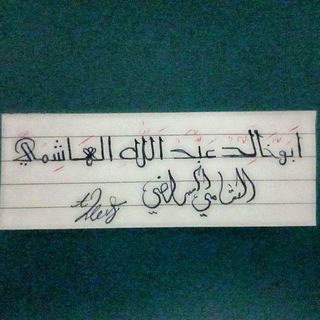 ابو خالد عبد الله الهاشمي
الشامي